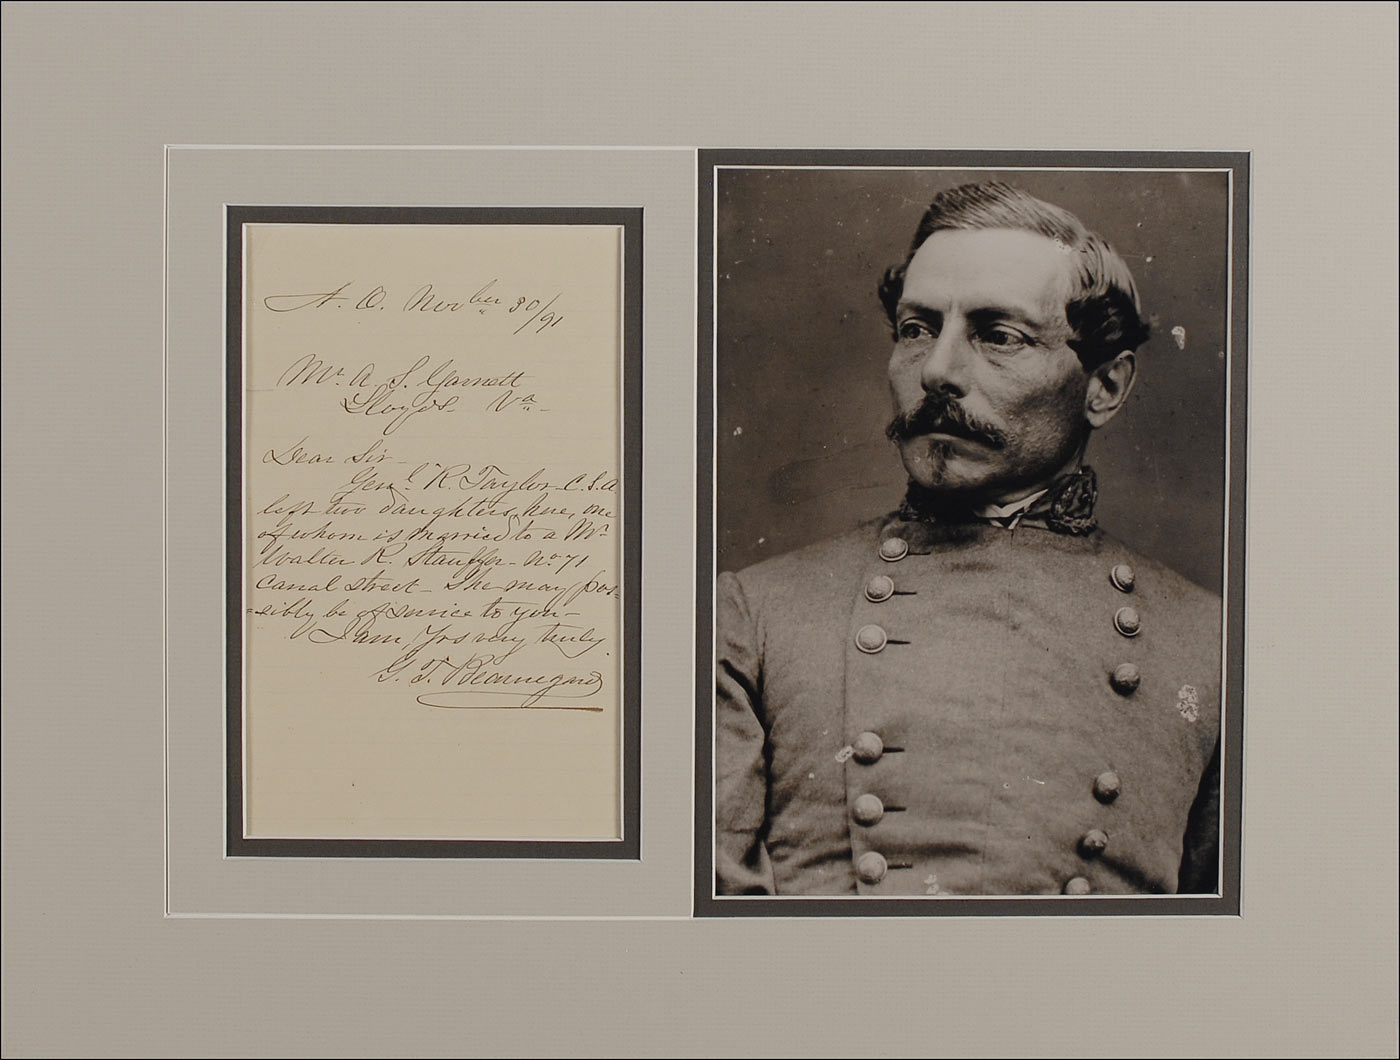 N. O. Novber 30/91
Mr. A. S. Garnett
Lloyds - Va -
Dear Sir -
Genl. R. Taylor C.S.A
left two daughters, here, one
of whom is married to a Mr
Walter R. Stauffer - No 71
Canal street - She may pos=
=sibly be of service to you -
I am Yrs very truly.
G. T. Beauregard